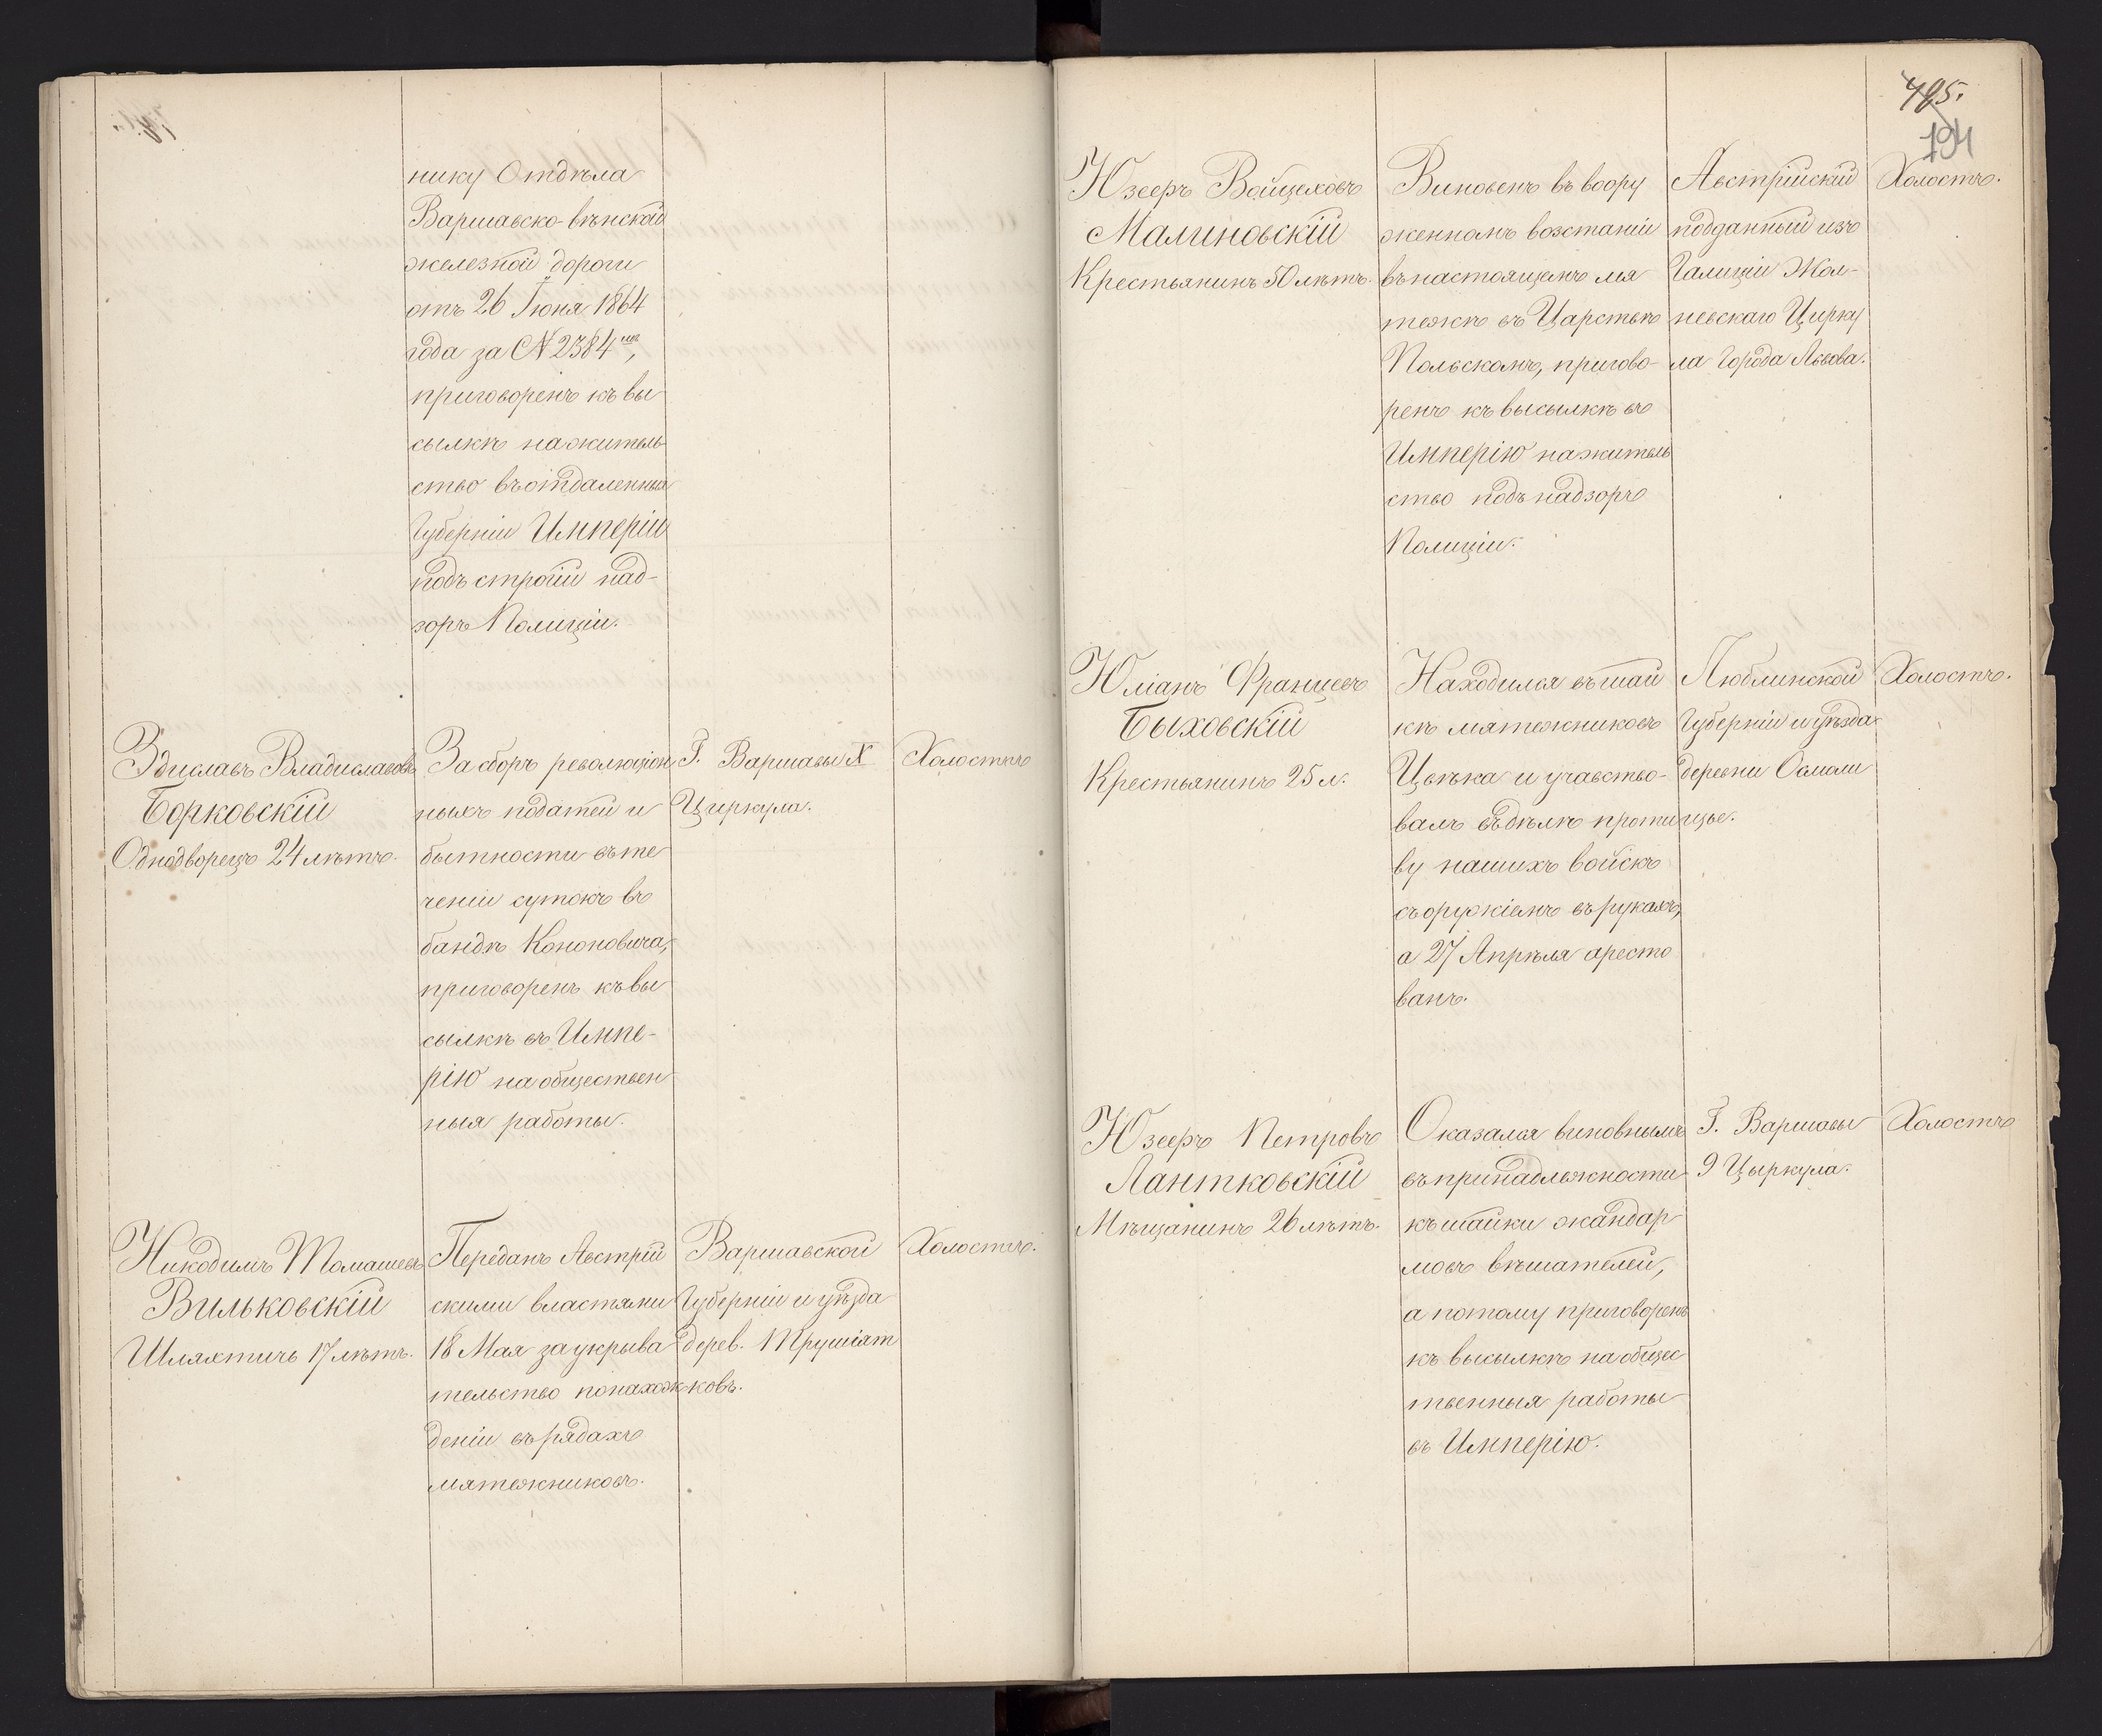 нику Отдѣла
Варшавско-вѣнской
железной дороги
отъ 26 Іюня 1864
года за № 2384,
приговоренъ къ вы
сылкѣ на житель
ство въ отдаленныя
Губерніи Имперіи
подъ строгій над-
зоръ Полиціи.
Здиславъ Владиславовъ
Борковскій
Однодворецъ 24 лѣтъ.
За сборъ революціон
ныхъ податей и
бытности въ те
ченіи сутокъ въ
бандѣ Кононовича,
приговоренъ къ вы
сылкѣ въ Импе-
рію на обществен
ныя работы.
Г. Варшавы X
Циркула.
Холостъ
Никодимъ Томашевъ
Вильковскій
Шляхтичь 17 лѣтъ.
Переданъ Австрій
скими властями
18 Мая за укрыва
тельство по нахож
деніи въ рядахъ
мятежниковъ.
Варшавской
Губерніи и уѣзда
дерев.
ковъ.
Холостъ.
495.
194
Юзефъ Войцеховъ
Малиновскій
Крестьянинъ 50 лѣтъ.
Виновенъ въ воору
женномъ возстаніи
въ настоящемъ мя
тежѣ въ Царствѣ
Польскомъ, пригово-
ренъ къ высылкѣ въ
Имперію на житель
ство подъ надзоръ
Полиціи.
Австрійскій
подданный изъ
Галиціи Жол-
невскаго Цирку
ла города Львова.
Холостъ.
Юліанъ Францевъ
Быховскій
Крестьянинъ 25 л.
Находился въ шай
кѣ мятежниковъ
Цвѣка и учавство-
валъ въ дѣлѣ проти
ву нашихъ войскъ
съ оружіемъ въ рукахъ,
а 27 Апрѣля аресто
ванъ.
Люблинской
Губерніи и уѣзда
деревни Осмоли
цые.
Холостъ.
Юзефъ Петровъ
Лантковскій
Мѣщанинъ 26 лѣтъ.
Оказался виновнымъ
въ принадлежности
къ шайки жандар
мовъ вѣшателей,
а потому приговоренъ
къ высылкѣ на общес
твенныя работы
въ Имперію.
Г. Варшавы
9 Цыркула.
Холостъ